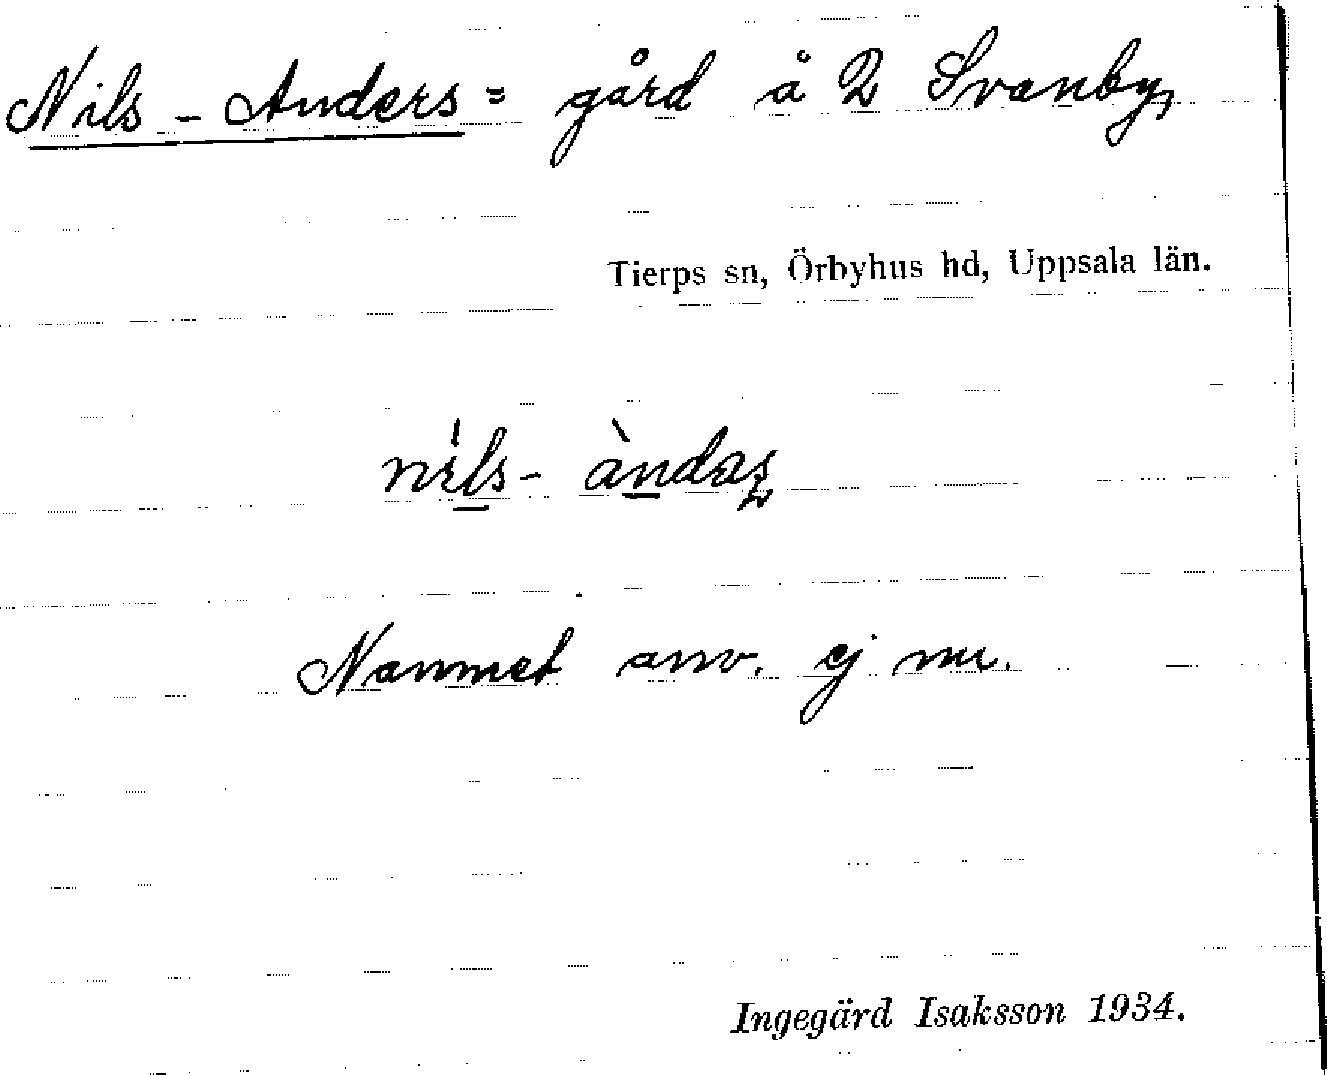 Nils - Anders = gård å 2 Svanby,
Tierps sn, Örbyhus hd, Uppsala län.
nils - àndaʂ
Namnet anv. ej nu.
Ingegärd Isaksson 1934.